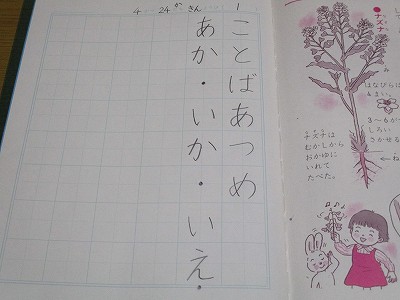 4 24 か きん
1 ことばあつめ
あか・いか・いえ・
ナズナ
はなびらは
4まい。
3〜6が
しろい
さかせる
ナズナは
むかしから
おかゆに
いれて
たべた。